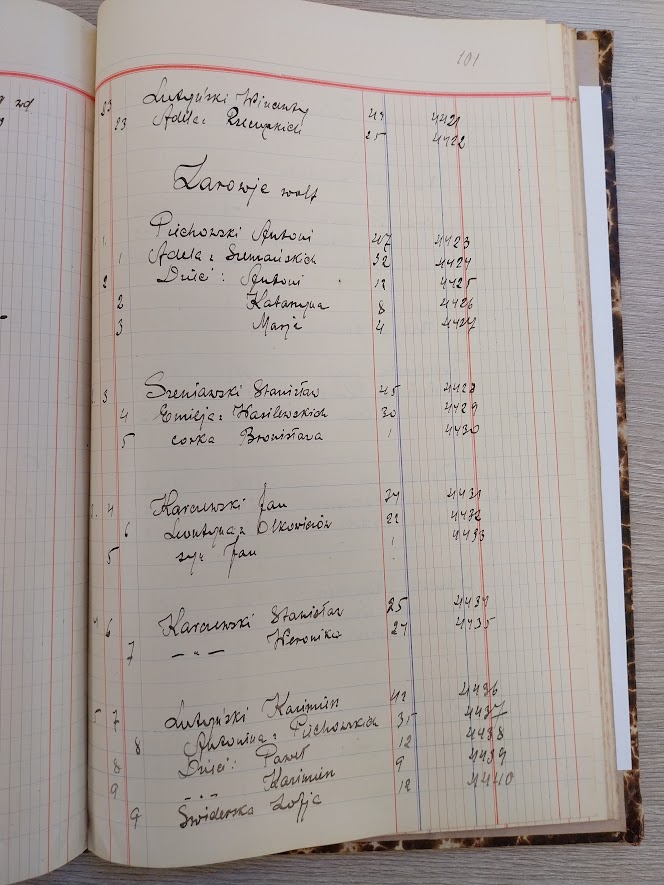 101
23 Lutyński Wincenty 49 4421
23 Adela z 25 4422
Zarowje wolf
1. Piichowski Antoni 47 4423
1 Adela z Szumańskich 32 4424
2 Dzieci: Antoni 12 4425
2 Katarzyna 8 4426
3 Marja 4 4427
3 Szeniawski Stanisław 45 4428
4 Emilja z Wasilewskich 30 4429
5 corka Bronisława 1 4430
4 Karczewski Jan 4431
6 Leontyna z Olkowiczów 22 4432
5 syn Jan 4433
6 Karczewski Stanisław 25 4434
7 — " — Weronika 27 4435
5 7 Lutyński Kazimierz 42 4436
8 Antonina z Piichowskich 35 4437
8 Dzieci: Paweł 12 4438
9 - - - Kazimierz 9 4439
9 Świderska Zofja 12 4440